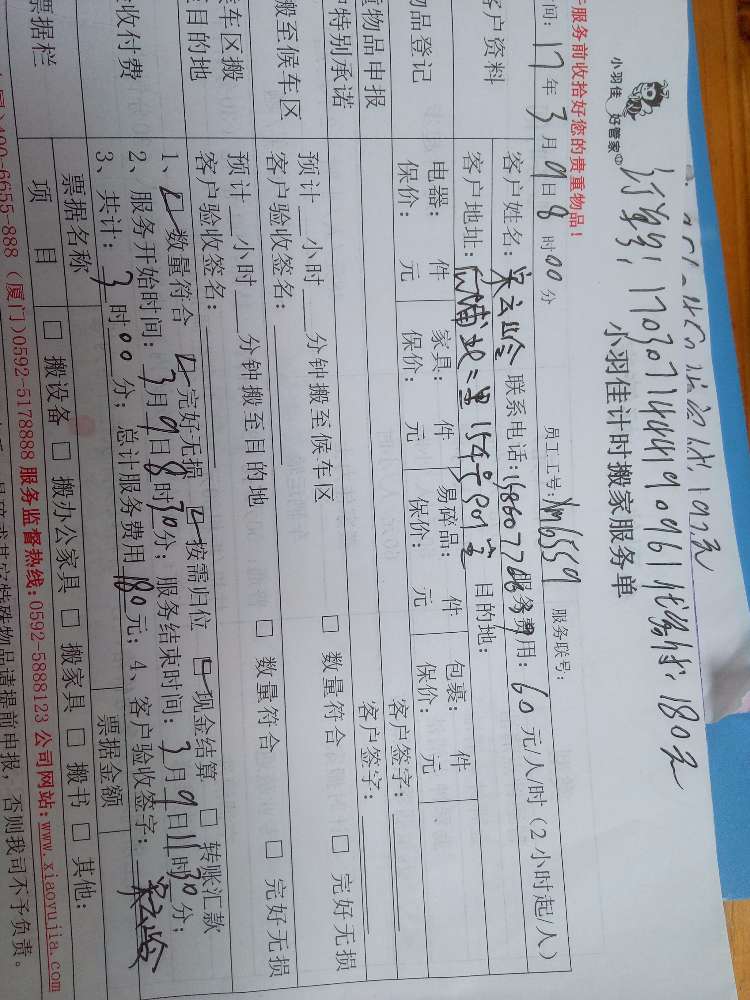 订单号:170307144419096 代缴费:180元
小羽佳 好管家
小羽佳计时搬家服务单
服务前收拾好您的贵重物品!
时间:17年3月9日8时00分 员工工号:xm6559 服务联号:
客户资料
客户姓名: 联系电话: 服务费用:60元/人/时(2小时起/人)
客户地址: 154号 目的地:
物品登记
电器: 件 家具: 件 易碎品: 件 包裹: 件
保价: 元 保价: 元 保价: 元 保价: 元
物品申报
客户签字:
特别承诺
客户签字:
搬至候车区
预计 小时 分钟搬至候车区 □ 数量符合 □ 完好无损
客户验收签名:
车区搬
目的地
预计 小时 分钟搬至目的地 □ 数量符合 □ 完好无损
客户验收签名:
收付费
1、数量符合 完好无损 按需归位 现金结算 □ 转账汇款
2、服务开始时间:3月9日8时30分;服务结束时间:3月9日11时30分;
3、共计:3时00分;总计服务费用180元;4、客户验收签字:
票据栏
票据名称 票据金额
项 目 □ 搬设备 □ 搬办公家具 □ 搬家具 □ 搬书 □ 其他:
400-6655-888(厦门)0592-5178888 服务监督热线:0592-5888123 公司网站:www.xiaoyujia.com
特殊物品请提前申报,否则我司不予负责。